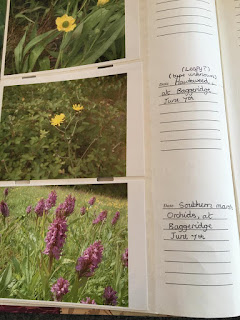 (Leafy?)
(type unknown)
Hawkweed,
at Baggeridge
June 7th
Southern marsh
Orchids, at
Baggeridge
June 7th